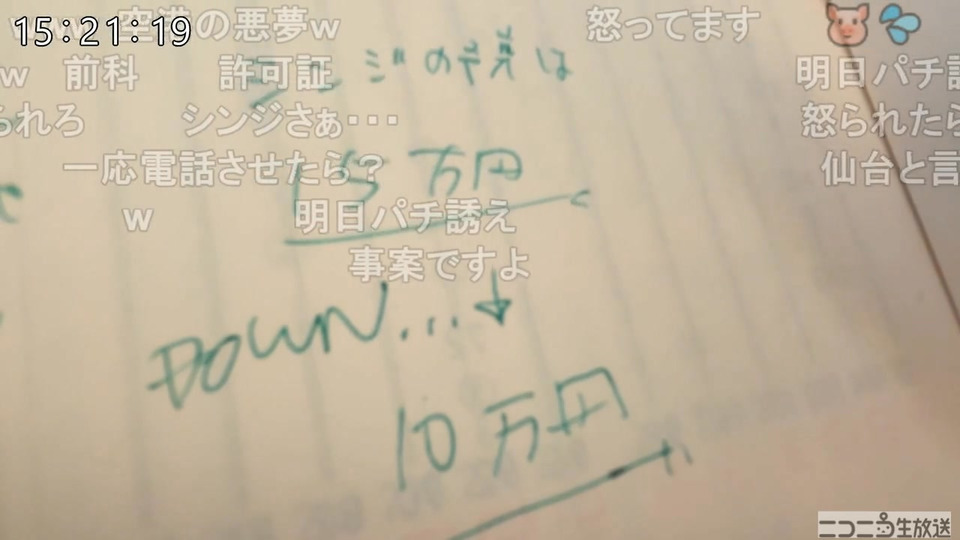 15:21:19
ww 空港の悪夢w
怒ってます
w 前科 許可証
明日パチ誘
シンジの件は
られろ シンジさぁ・・・
怒られたら
一応電話させたら?
仙台と言
15万円
w 明日パチ誘え
事案ですよ
DOWN...↓
10万円
ニコニコ生放送